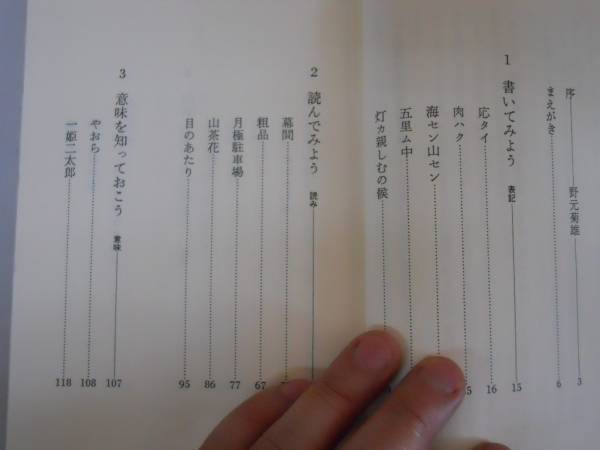 序 野元菊雄 3
まえがき 6
1 書いてみよう 表記 15
応タイ 16
肉ハク 5
海セン山セン
五里ム中
灯カ親しむの候
2 読んでみよう 読み
幕間
粗品 67
月極駐車場 77
山茶花 86
目のあたり 95
3 意味を知っておこう 意味 107
やおら 108
一姫二太郎 118